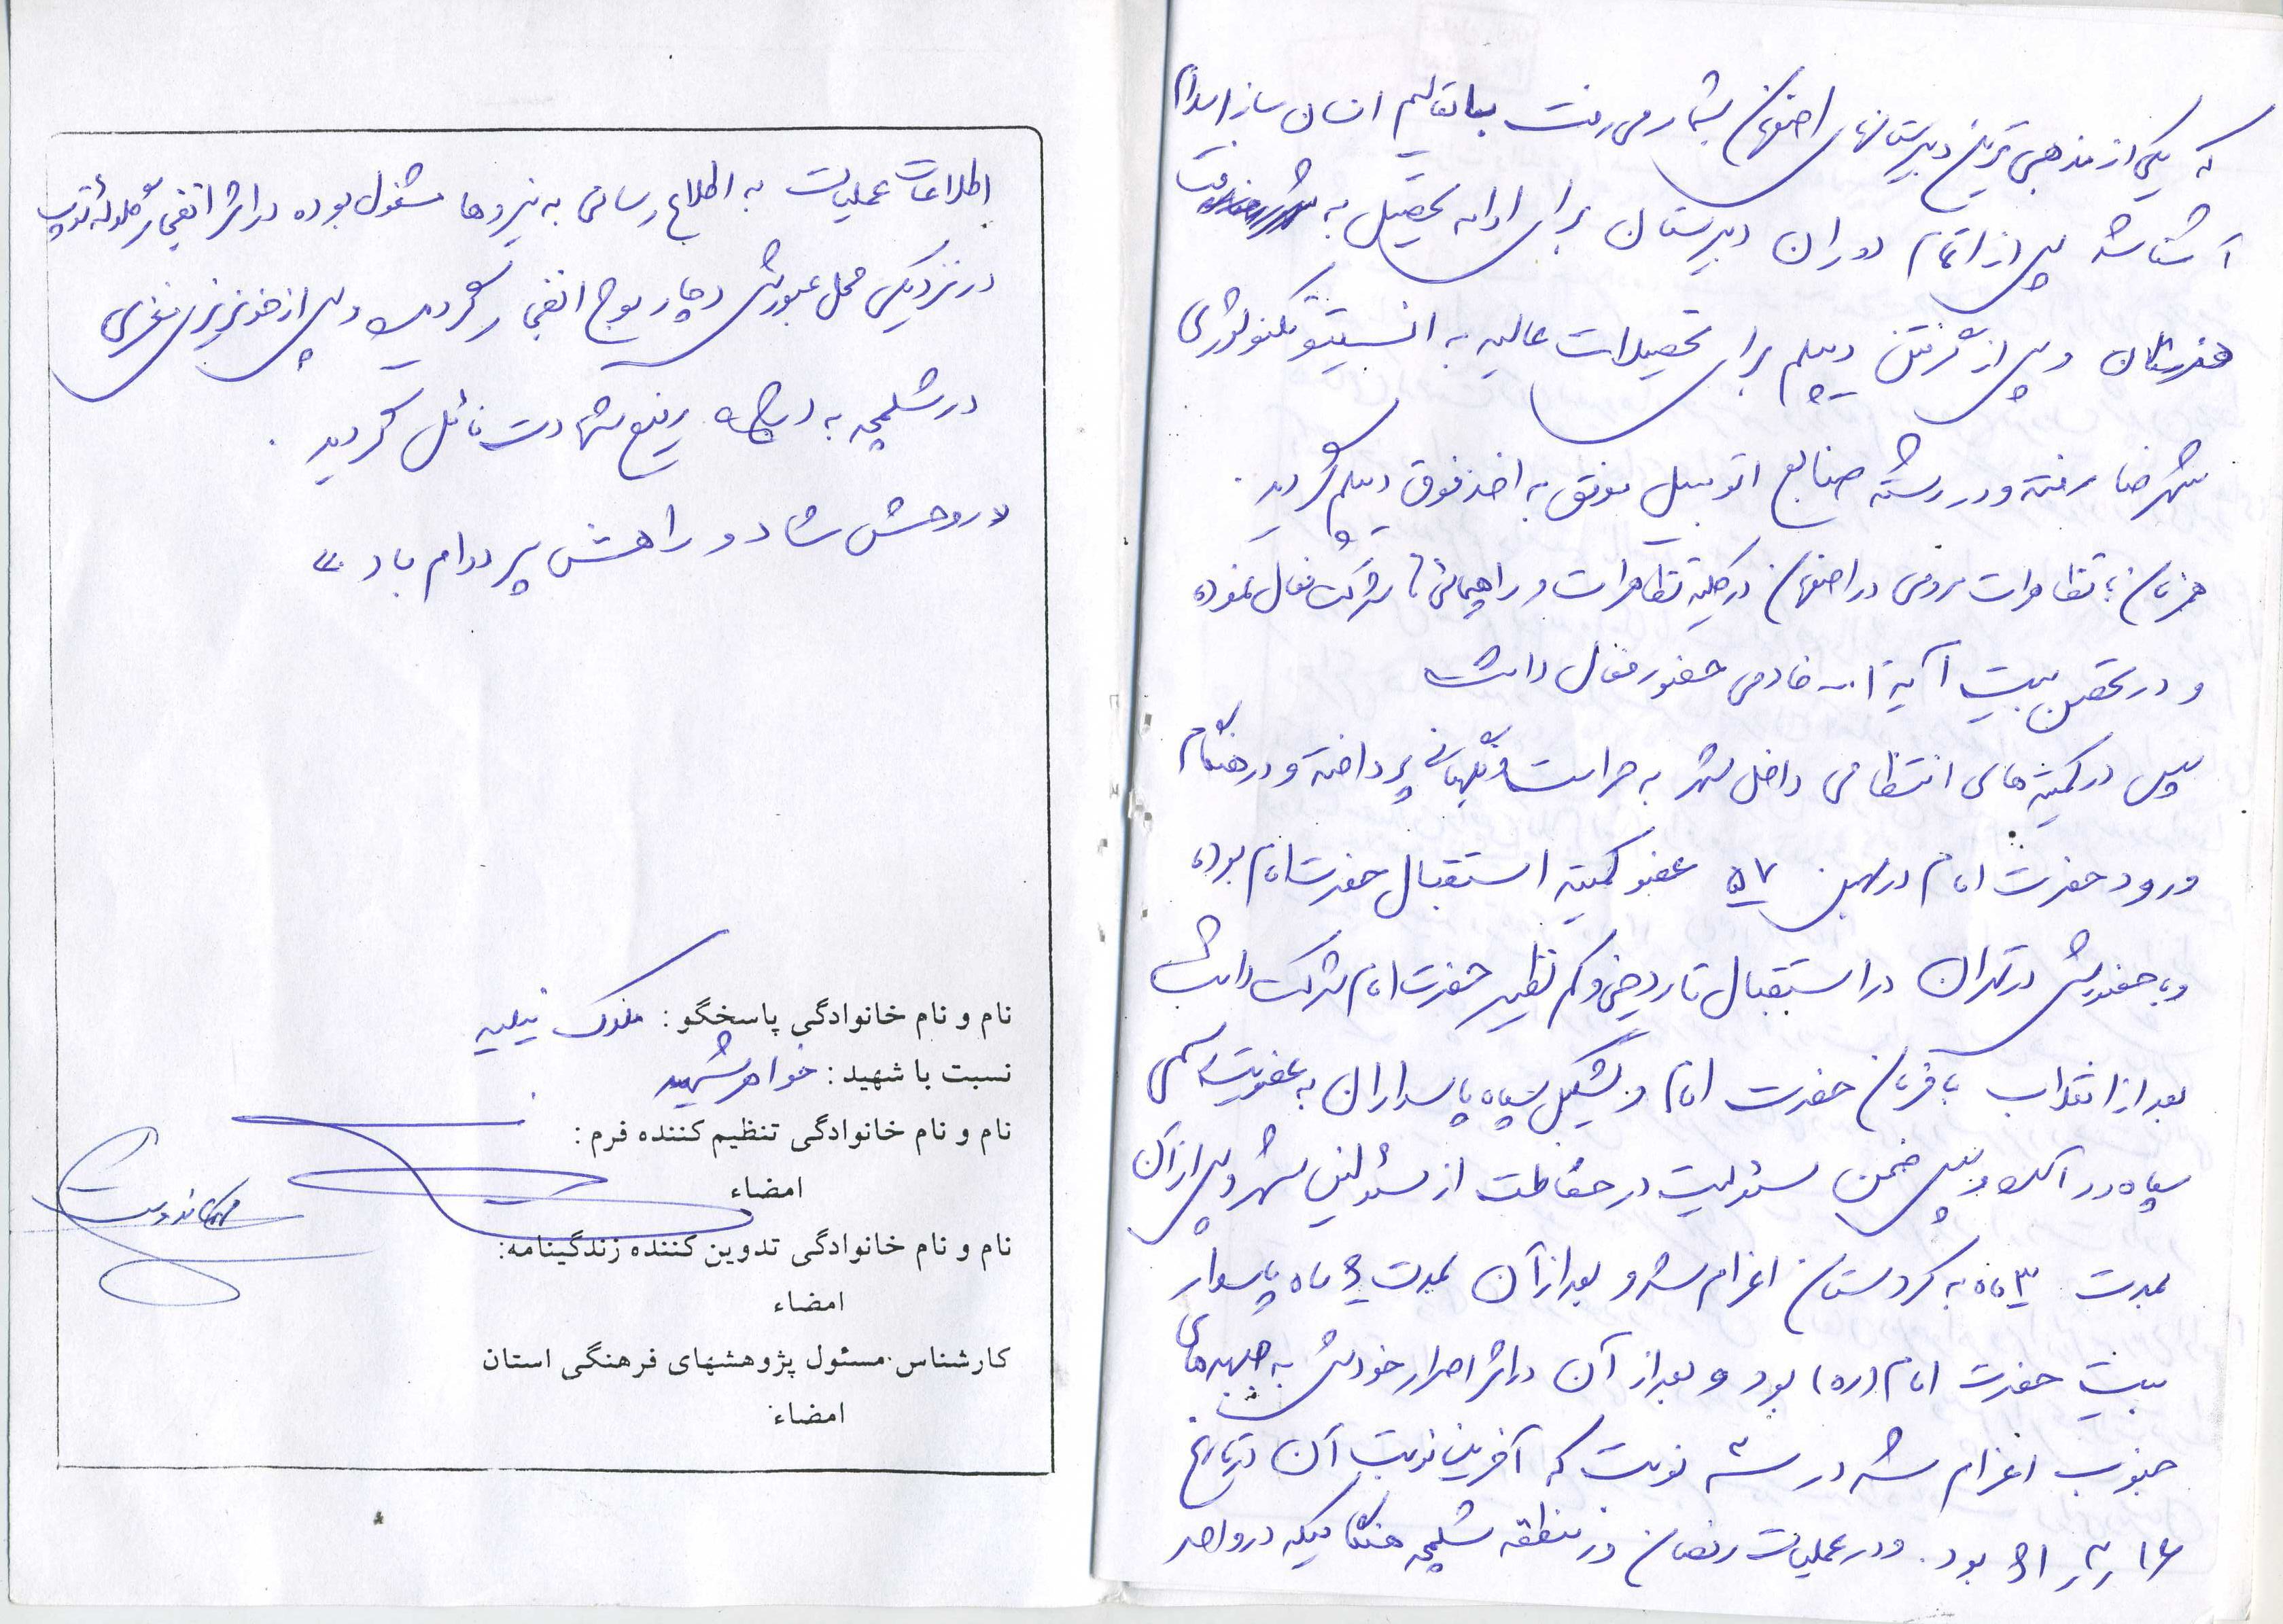 که یکی از مذهبی ترین دبیرستانهای اصفهان بشمار می رفت با تعالیم انسان ساز اسلام
آشنا شد پس از اتمام دوران دبیرستان برای ادامه تحصیل به
هنرستان و پس از گرفتن دیپلم برای تحصیلات عالیه به انستیتو تکنولوژی
شهرضا رفته و در رشته صنایع اتومبیل موفق به اخذ فوق دیپلم گردید.
همزمان با تظاهرات مردمی در اصفهان در کلیه تظاهرات و راهپیمائی ها شرکت فعال نموده
و در تحصن بیت آیة ا... خادمی حضور فعال داشت
سپس در کمیته های انتظامی داخل شهر به حراست و نگهبانی پرداخته و در هنگام
ورود حضرت امام در بهمن ۵۷ عضو کمیته استقبال حضرت امام بوده
و با حضورش در تهران در استقبال تاریخی و کم نظیر حضرت امام شرکت داشت
بعد از انقلاب با فرمان حضرت امام و تشکیل سپاه پاسداران به عضویت رسمی
سپاه در آمد و سپس ضمن مسئولیت در حفاظت از مسئولین شهر و پس از آن
بمدت ۳ ماه به کردستان اعزام شد و بعد از آن بمدت ماه پاسدار
بیت حضرت امام (ره) بود و بعد از آن در اثر اصرار خودش به جبهه های
جنوب اعزام شد در سه نوبت که آخرین نوبت آن در تاریخ
بود. و در عملیات رمضان در منطقه شلمچه هنگامیکه در واحد
اطلاعات عملیات به اطلاع رسانی به نیروها مشغول بوده در اثر انفجار گلوله توپ
در نزدیکی محل عبورش دچار موج انفجار گردید و پس از خونریزی مغزی
در شلمچه به درجه رفیع شهادت نائل گردید.
«روحش شاد و راهش پر دوام باد»
نام و نام خانوادگی پاسخگو : ملوک
نسبت با شهید : خواهر شهید
نام و نام خانوادگی تنظیم کننده فرم :
امضاء
نام و نام خانوادگی تدوین کننده زندگینامه:
امضاء
کارشناس مسئول پژوهشهای فرهنگی استان
امضاء